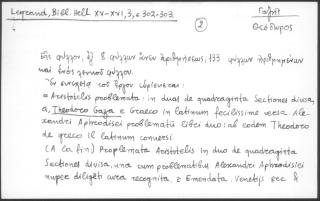 Legrand, Bibl. Hell XV-XVI, 3, σ 302-303.
Γαζῆς
②
Θεόδωρος
ἓν φύλλον, ἐξ 8 φύλλων ἄνευ ἀριθμήσεως, 133 φύλλα ἀριθμημένα
καὶ ἑνὸς λευκοῦ φύλλου.
Ἐν συνεχείᾳ τοῦ ἔργου εὑρίσκεται:
Aristotelis problemata: in duas de quadraginta Sectiones divisa,
a, Theodoro Gaza e Graeco in latinum fecilissime versa. Ale-
xandri Aphrodisei problematū libri duo: ab eodem Theodoro
de greco il latinum conversi.
(A la fin) Proplemata Aristotelis in duo de quadraginta
Sectiones divisa, una cum problematibus Alexandri Aphrodisiei
nuper diligēti cura recognita, z Emendata. Venetijs per &